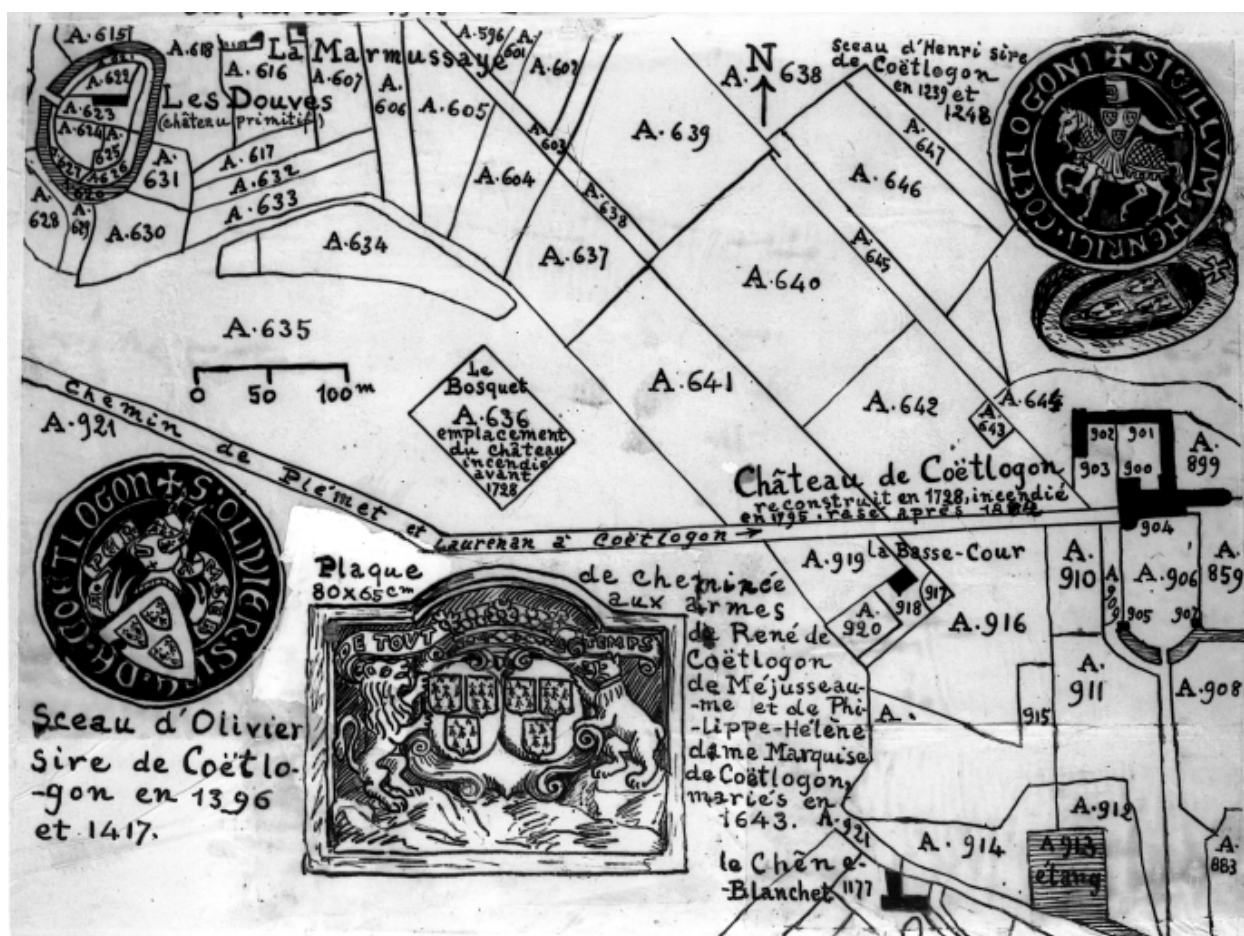 A.615
A.621
A.622
A.623
A.624
A.625
A.626
A.627
A.620
A.628
A.629
A.630
A.631
A.618
A.616
A.607
La Marmussaye
Les Douves
(château primitif)
A.617
A.632
A.633
A.634
A.635
A.606
A.605
A.596
A.601
A.602
A.603
A.604
A.638
A.637
A.639
N
A. 638
A.640
A.641
A.642
A.643
A.644
A.645
A.646
A.647
Sceau d'Henri sire
de Coëtlogon
en 1239 et
1248
✠ SIGILLVM HENRICI COETLOGONI
0 50 100 m
Le
Bosquet
A.636
emplacement
du château
incendié
avant
1728
A.921
Chemin de Plémet et Laurenan à Coëtlogon →
Château de Coëtlogon
reconstruit en 1728, incendié
en 1795. rasé après
902
901
903
900
A.
899
904
A.
859
A.906
905
907
A.909
A.
910
A.
911
A.908
A.919
la Basse-Cour
918
917
A.
920
A.916
915
A.
A.912
A 913
étang
A.914
A.
883
A.921
le Chêne-
-Blanchet
1177
✠ S: OLIVIER: SIRE: DE: COETLOGON
Sceau d'Olivier
sire de Coëtlo-
-gon en 1396
et 1417.
Plaque
80x65cm
de cheminée
aux armes
de René de
Coëtlogon
de Méjusseau-
-me et de Phi-
-lippe-Hélène
dame Marquise
de Coëtlogon,
mariés en
1643.
DE TOUT TEMPS